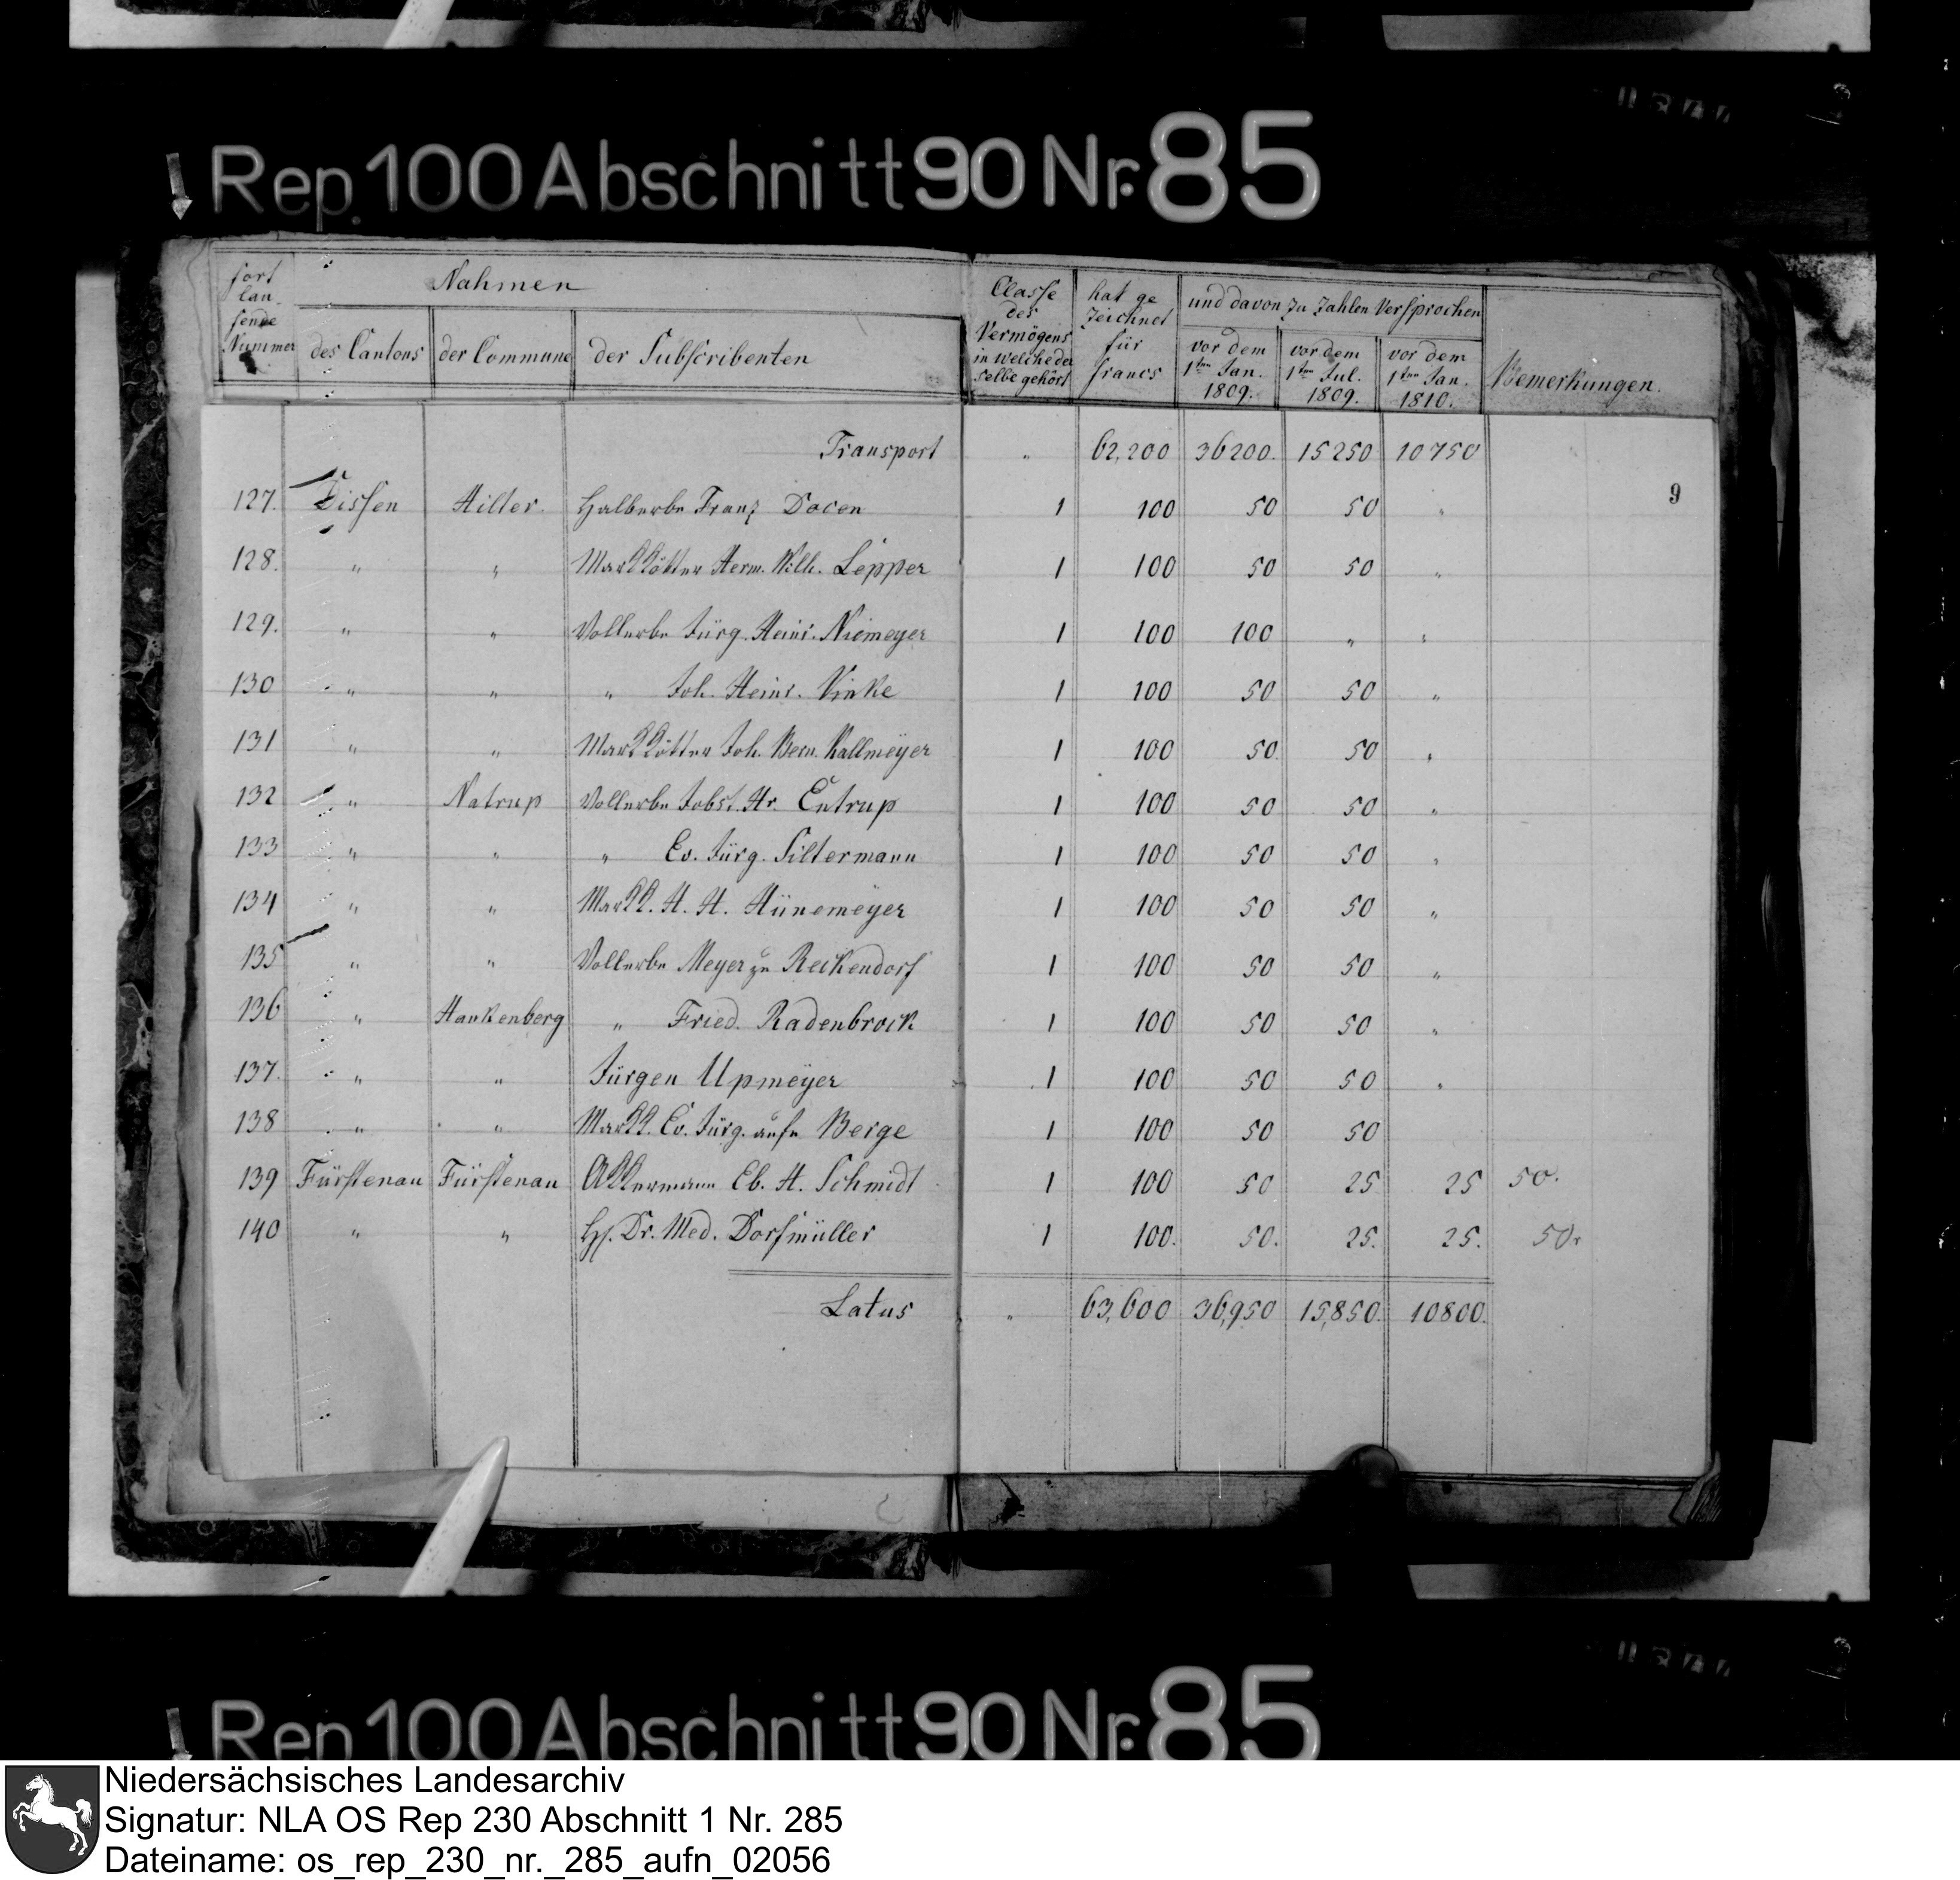 Rep. 100 Abschnitt 90 Nr. 85
fort lau fende Nummer
Nahmen
des Cantons
der Commune
der Subscribenten
Classe des Vermögens in welche der selbe gehört
hat ge zeichnet für francs
und davon zu zahlen versprochen
vor dem 1ten Jan. 1809.
vor dem 1ten Jul. 1809.
vor dem 1ten Jan. 1810.
Bemerkungen.
Transport " 62,200 36200. 15250 10750
9
127. Dissen Hilter. Halberbe Franz Docen 1 100 50 50 "
128. " " Markkötter Herm. Wilh. Lepper 1 100 50 50 "
129. " " Vollerbe Jürg. Heinr. Niemeyer 1 100 100 " "
130 " " " Joh. Heinr. Vinke 1 100 50 50 "
131 " " Markkötter Joh. Bern. Kallmeyer 1 100 50. 50 "
132 " Natrup Vollerbe Jobst. Hr. Entrup 1 100 50 50 "
133 " " " Ev. Jürg. Siltermann 1 100 50 50 "
134 " " Markk. H. H. Hünemeyer 1 100 50 50 "
135 " " Vollerbe Meyer zu Reckendorf 1 100 50 50 "
136 " Hankenberg " Fried. Radenbrock 1 100 50 50 "
137. " " Jürgen Upmeyer 1 100 50 50 "
138 " " Markk. Ev. Jürg. aufm Berge 1 100 50 50
139 Fürstenau Fürstenau Akkermann Eb. H. Schmidt 1 100 50 25 25 50.
140 " " H. Dr. Med. Dorfmüller 1 100. 50. 25. 25. 50.
Latus " 63,600 36,950 15,850. 10800.
Rep 100 Abschnitt 90 Nr. 85
Niedersächsisches Landesarchiv
Signatur: NLA OS Rep 230 Abschnitt 1 Nr. 285
Dateiname: os_rep_230_nr._285_aufn_02056